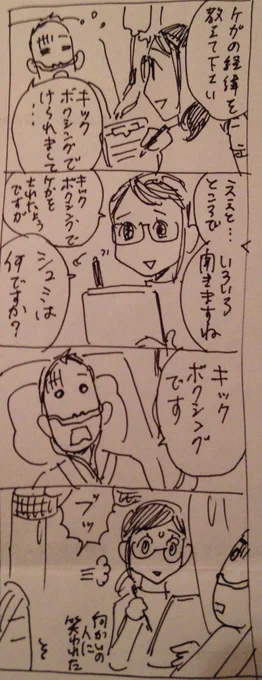 ケガの経緯を
教えて下さい
キック
ボクシングで
けられまして
…
ええと…
ところで
いろいろ
聞きますね
キック
ボクシングで
ケガを
されたよう
ですが
シュミは
何ですか？
キック
ボクシング
です
ブッ
向かいの
人に
笑われた